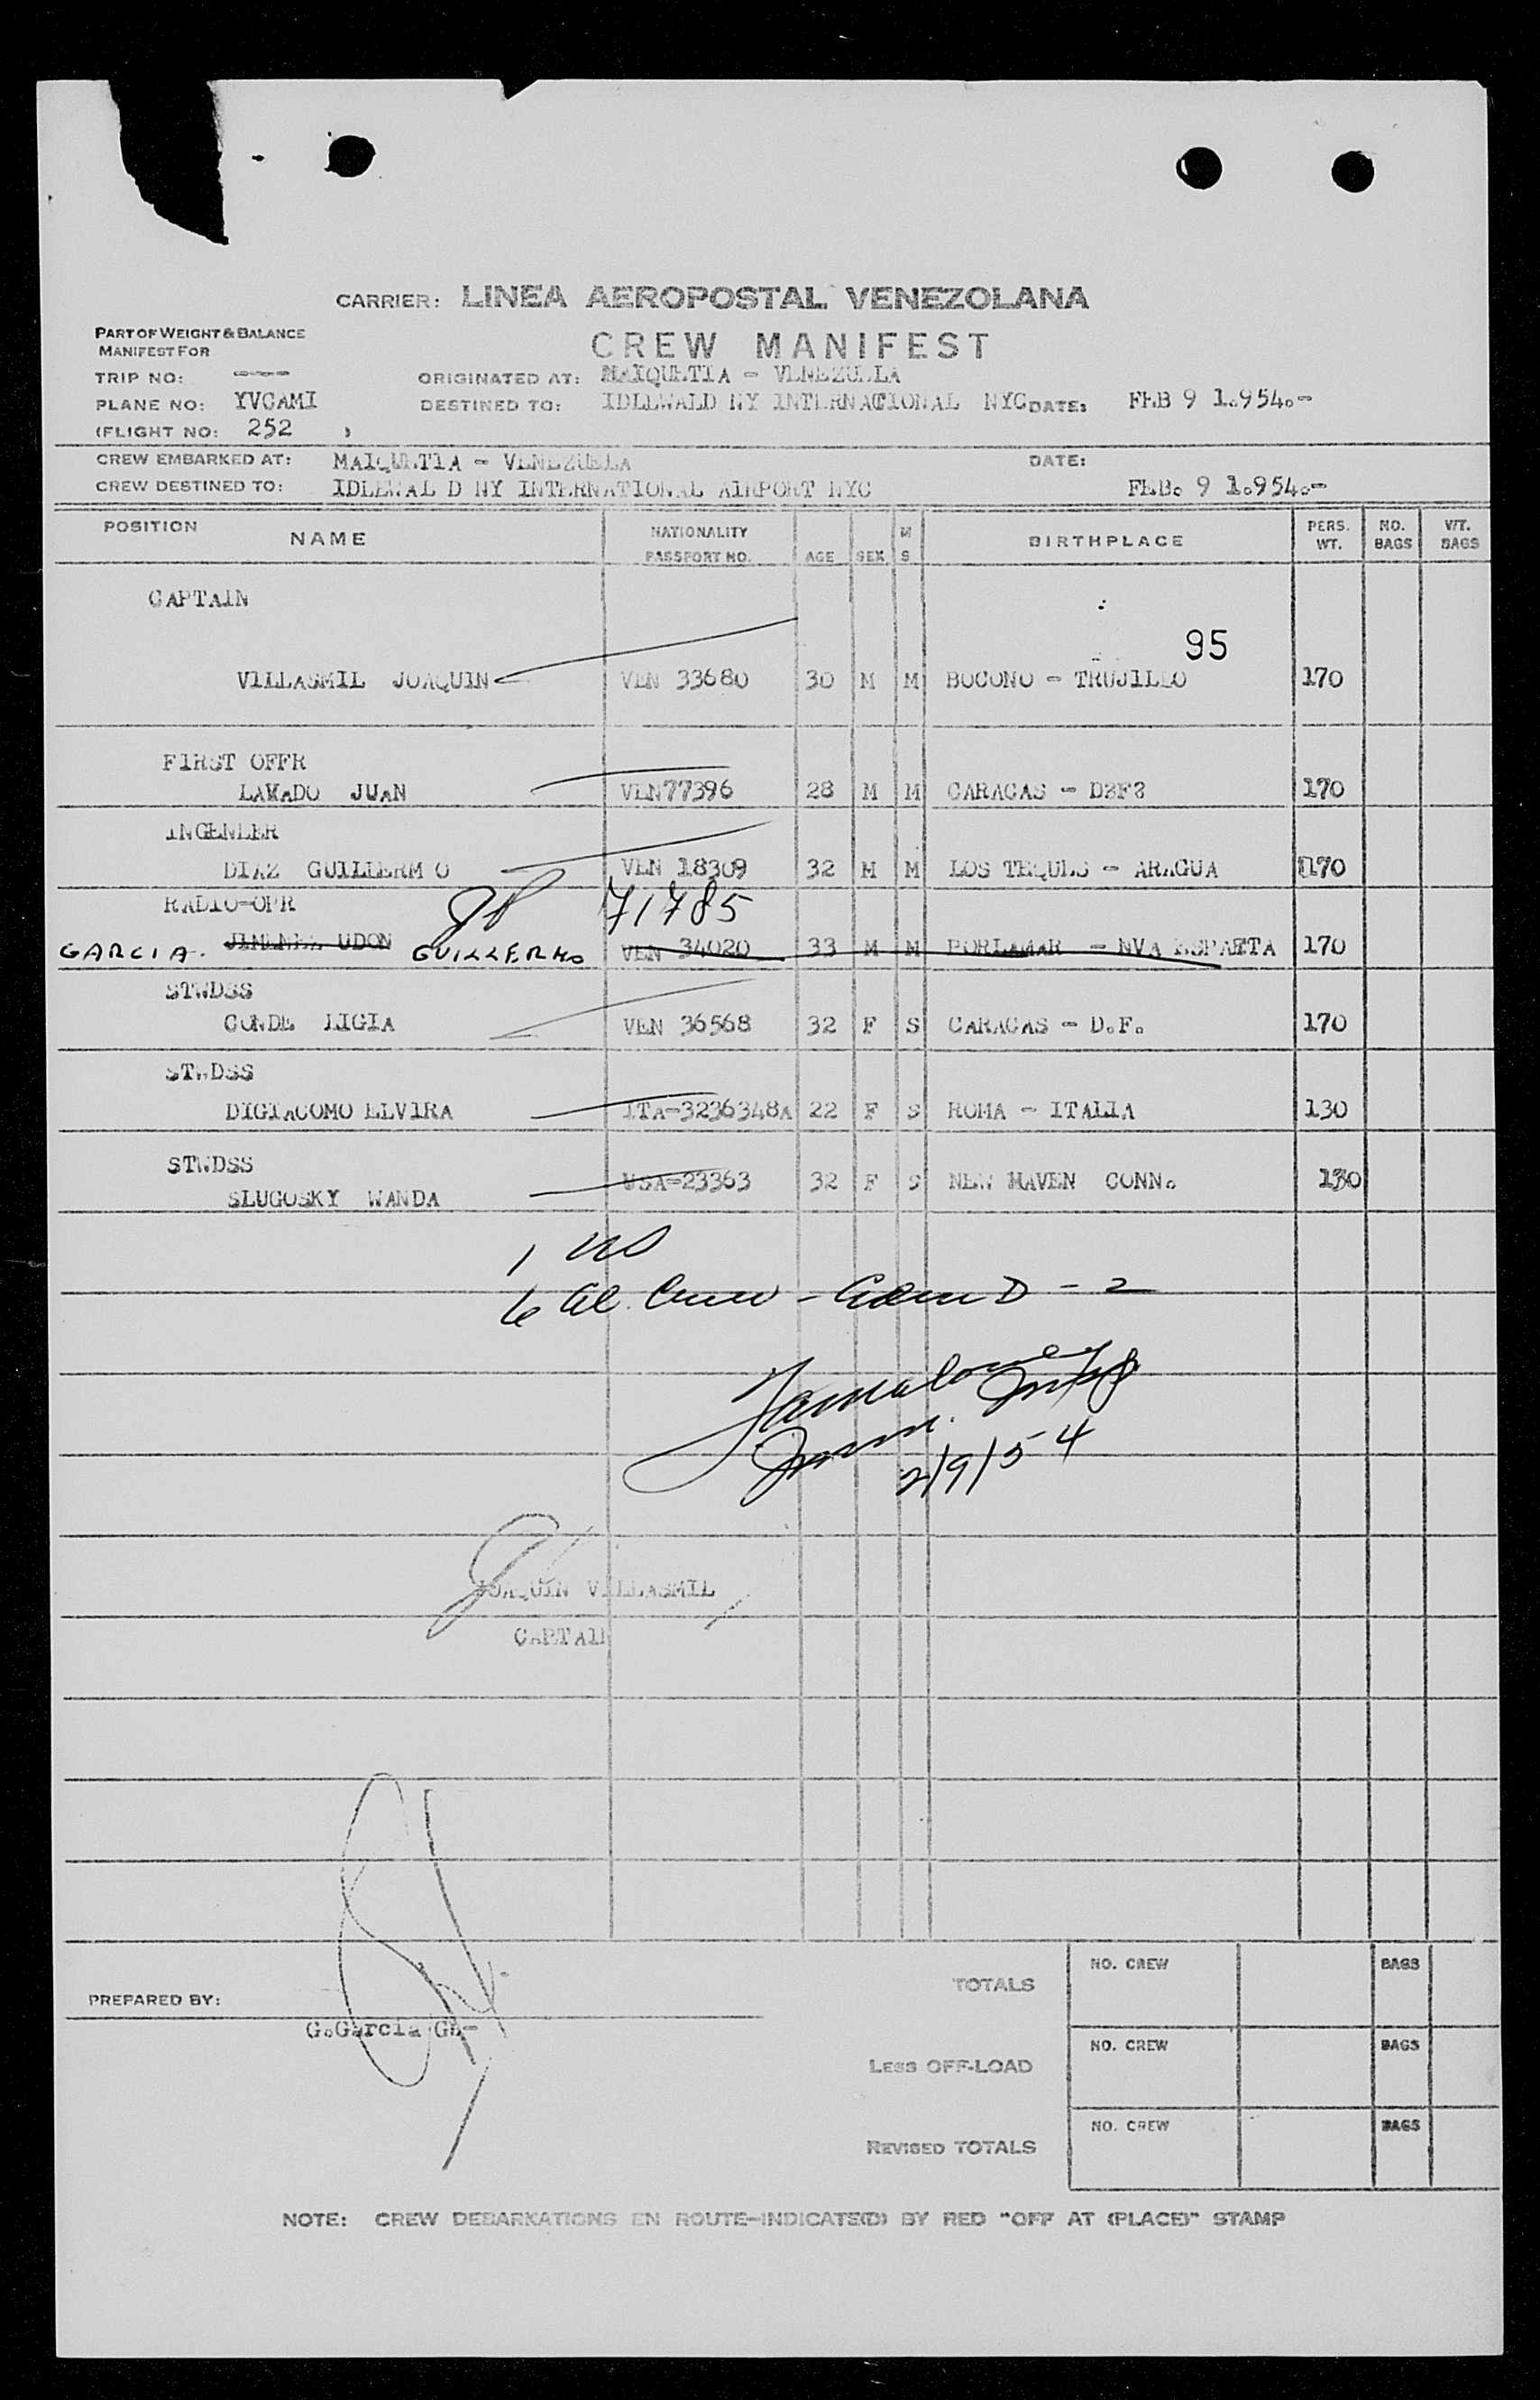 CARRIER: LINEA AEROPOSTAL VENEZOLANA
PART OF WEIGHT & BALANCE
MANIFEST FOR
CREW MANIFEST
TRIP NO: ---- ORIGINATED AT: MAIQUETIA - VENEZUELA
PLANE NO: YVCAMI DESTINED TO: IDLEWALD NY INTERNATIONAL NYC DATE: FEB 9 1.954.-
(FLIGHT NO: 252 )
CREW EMBARKED AT: MAIQUETIA - VENEZUELA DATE:
CREW DESTINED TO: IDLEWAL D NY INTERNATIONAL AIRPORT NYC FEB. 9 1.954.-
POSITION NAME NATIONALITY PASSPORT NO. AGE SEX M S BIRTHPLACE PERS. WT. NO. BAGS WT. BAGS
CAPTAIN
95
VILLASMIL JOAQUIN VEN 33680 30 M M BOCONO - TRUJILLO 170
FIRST OFFR
LAMADO JUAN VEN77396 28 M M CARACAS - D3F8 170
INGENEER
DIAZ GUILLERM O VEN 18309 32 M M LOS TEQUES - ARAGUA 170
RADIO-OPR 71785
GARCIA. JIMENEZ UDON GUILLERMO VEN 34020 33 M M PORLAMAR - NVA ESPARTA 170
STWDSS
CONDE LIGIA VEN 36568 32 F S CARACAS - D.F. 170
STWDSS
DIGIACOMO ELVIRA ITA-3236348A 22 F S ROMA - ITALIA 130
STWDSS
SLUGOSKY WANDA USA-23363 32 F S NEW HAVEN CONN. 130
1 US
6 al Crew - Adm D - 2
Imm.
2/9/54
JOAQUIN VILLASMIL
CAPTAIN
PREPARED BY:
G.Garcia G.-
TOTALS NO. CREW BAGS
LESS OFF-LOAD NO. CREW BAGS
REVISED TOTALS NO. CREW BAGS
NOTE: CREW DEBARKATIONS EN ROUTE-INDICATE(D) BY RED "OFF AT (PLACE)" STAMP